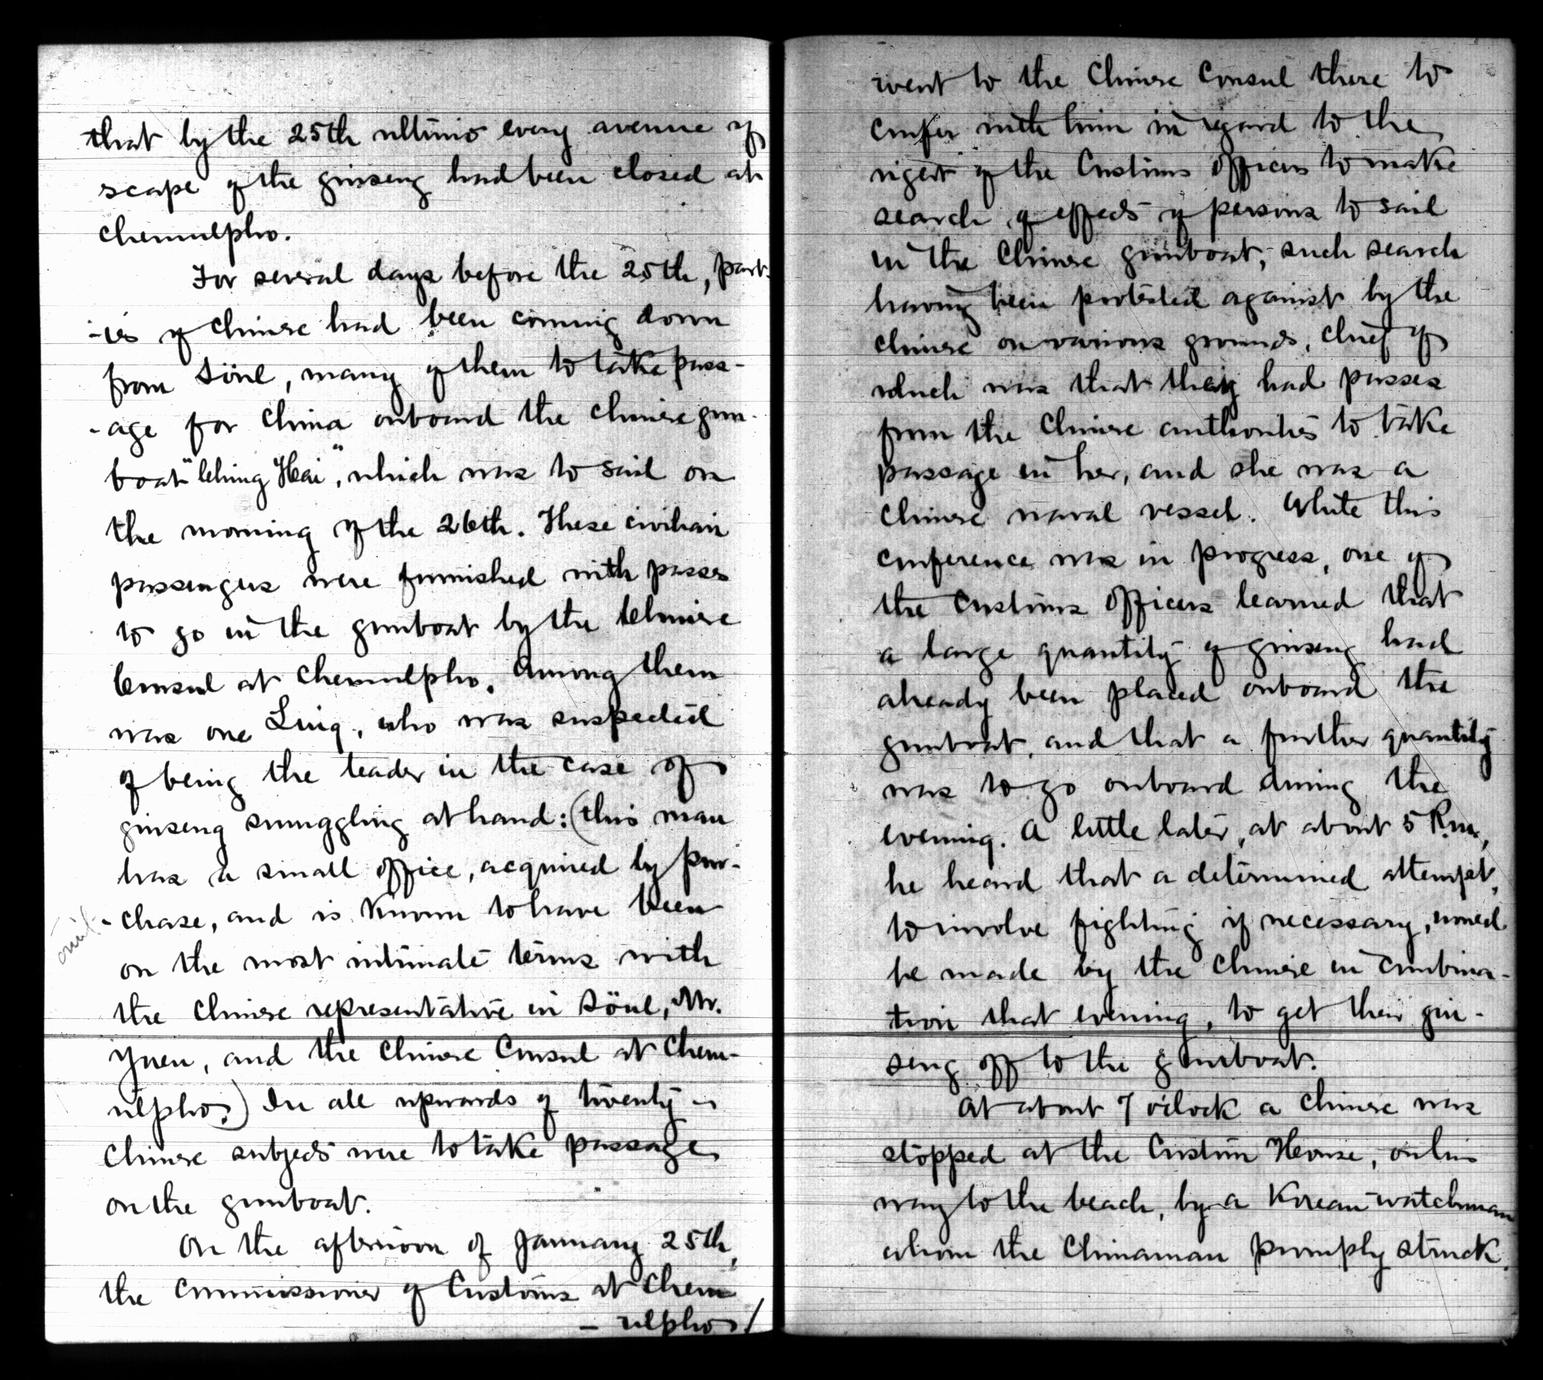 that by the 25th ultimo every avenue of
scape of the ginseng had been closed at
Chemulpho.
For several days before the 25th, part-
-ies of Chinese had been coming down
from Söul, many of them to take pass-
-age for China onboard the Chinese gun-
boat "Ching Hai", which was to sail on
the morning of the 26th. These civilian
passengers were furnished with passes
to go in the gunboat by the Chinese
Consul at Chemulpho. Among them
was one Ling, who was suspected
of being the leader in the case of
ginseng smuggling at hand: (this man
has a small office, acquired by pur-
omit
-chase, and is known to have been
on the most intimate terms with
the Chinese representative in Söul, Mr.
Yuen, and the Chinese Consul at Chem-
ulpho.) In all upwards of twenty
Chinese subjects were to take passage
on the gunboat.
On the afternoon of January 25th,
the Commissioner of Customs at Chem
- ulpho /
went to the Chinese Consul there to
confer with him in regard to the
right of the Customs officers to make
search of effects of persons to sail
in the Chinese gunboat, such search
having been protested against by the
Chinese on various grounds, chief of
which was that they had passes
from the Chinese authorities to take
passage in her, and she was a
Chinese naval vessel. While this
conference was in progress, one of
the Customs officers learned that
a large quantity of ginseng had
already been placed onboard the
gunboat, and that a further quantity
was to go onboard during the
evening. A little later, at about 5 P.m.,
he heard that a determined attempt,
to involve fighting if necessary, would
be made by the Chinese in combina-
tion that evening, to get their gin-
seng off to the gunboat.
At about 7 o'clock a Chinese was
stopped at the Custom House, on his
way to the beach, by a Korean watchman
whom the Chinaman promply struck.